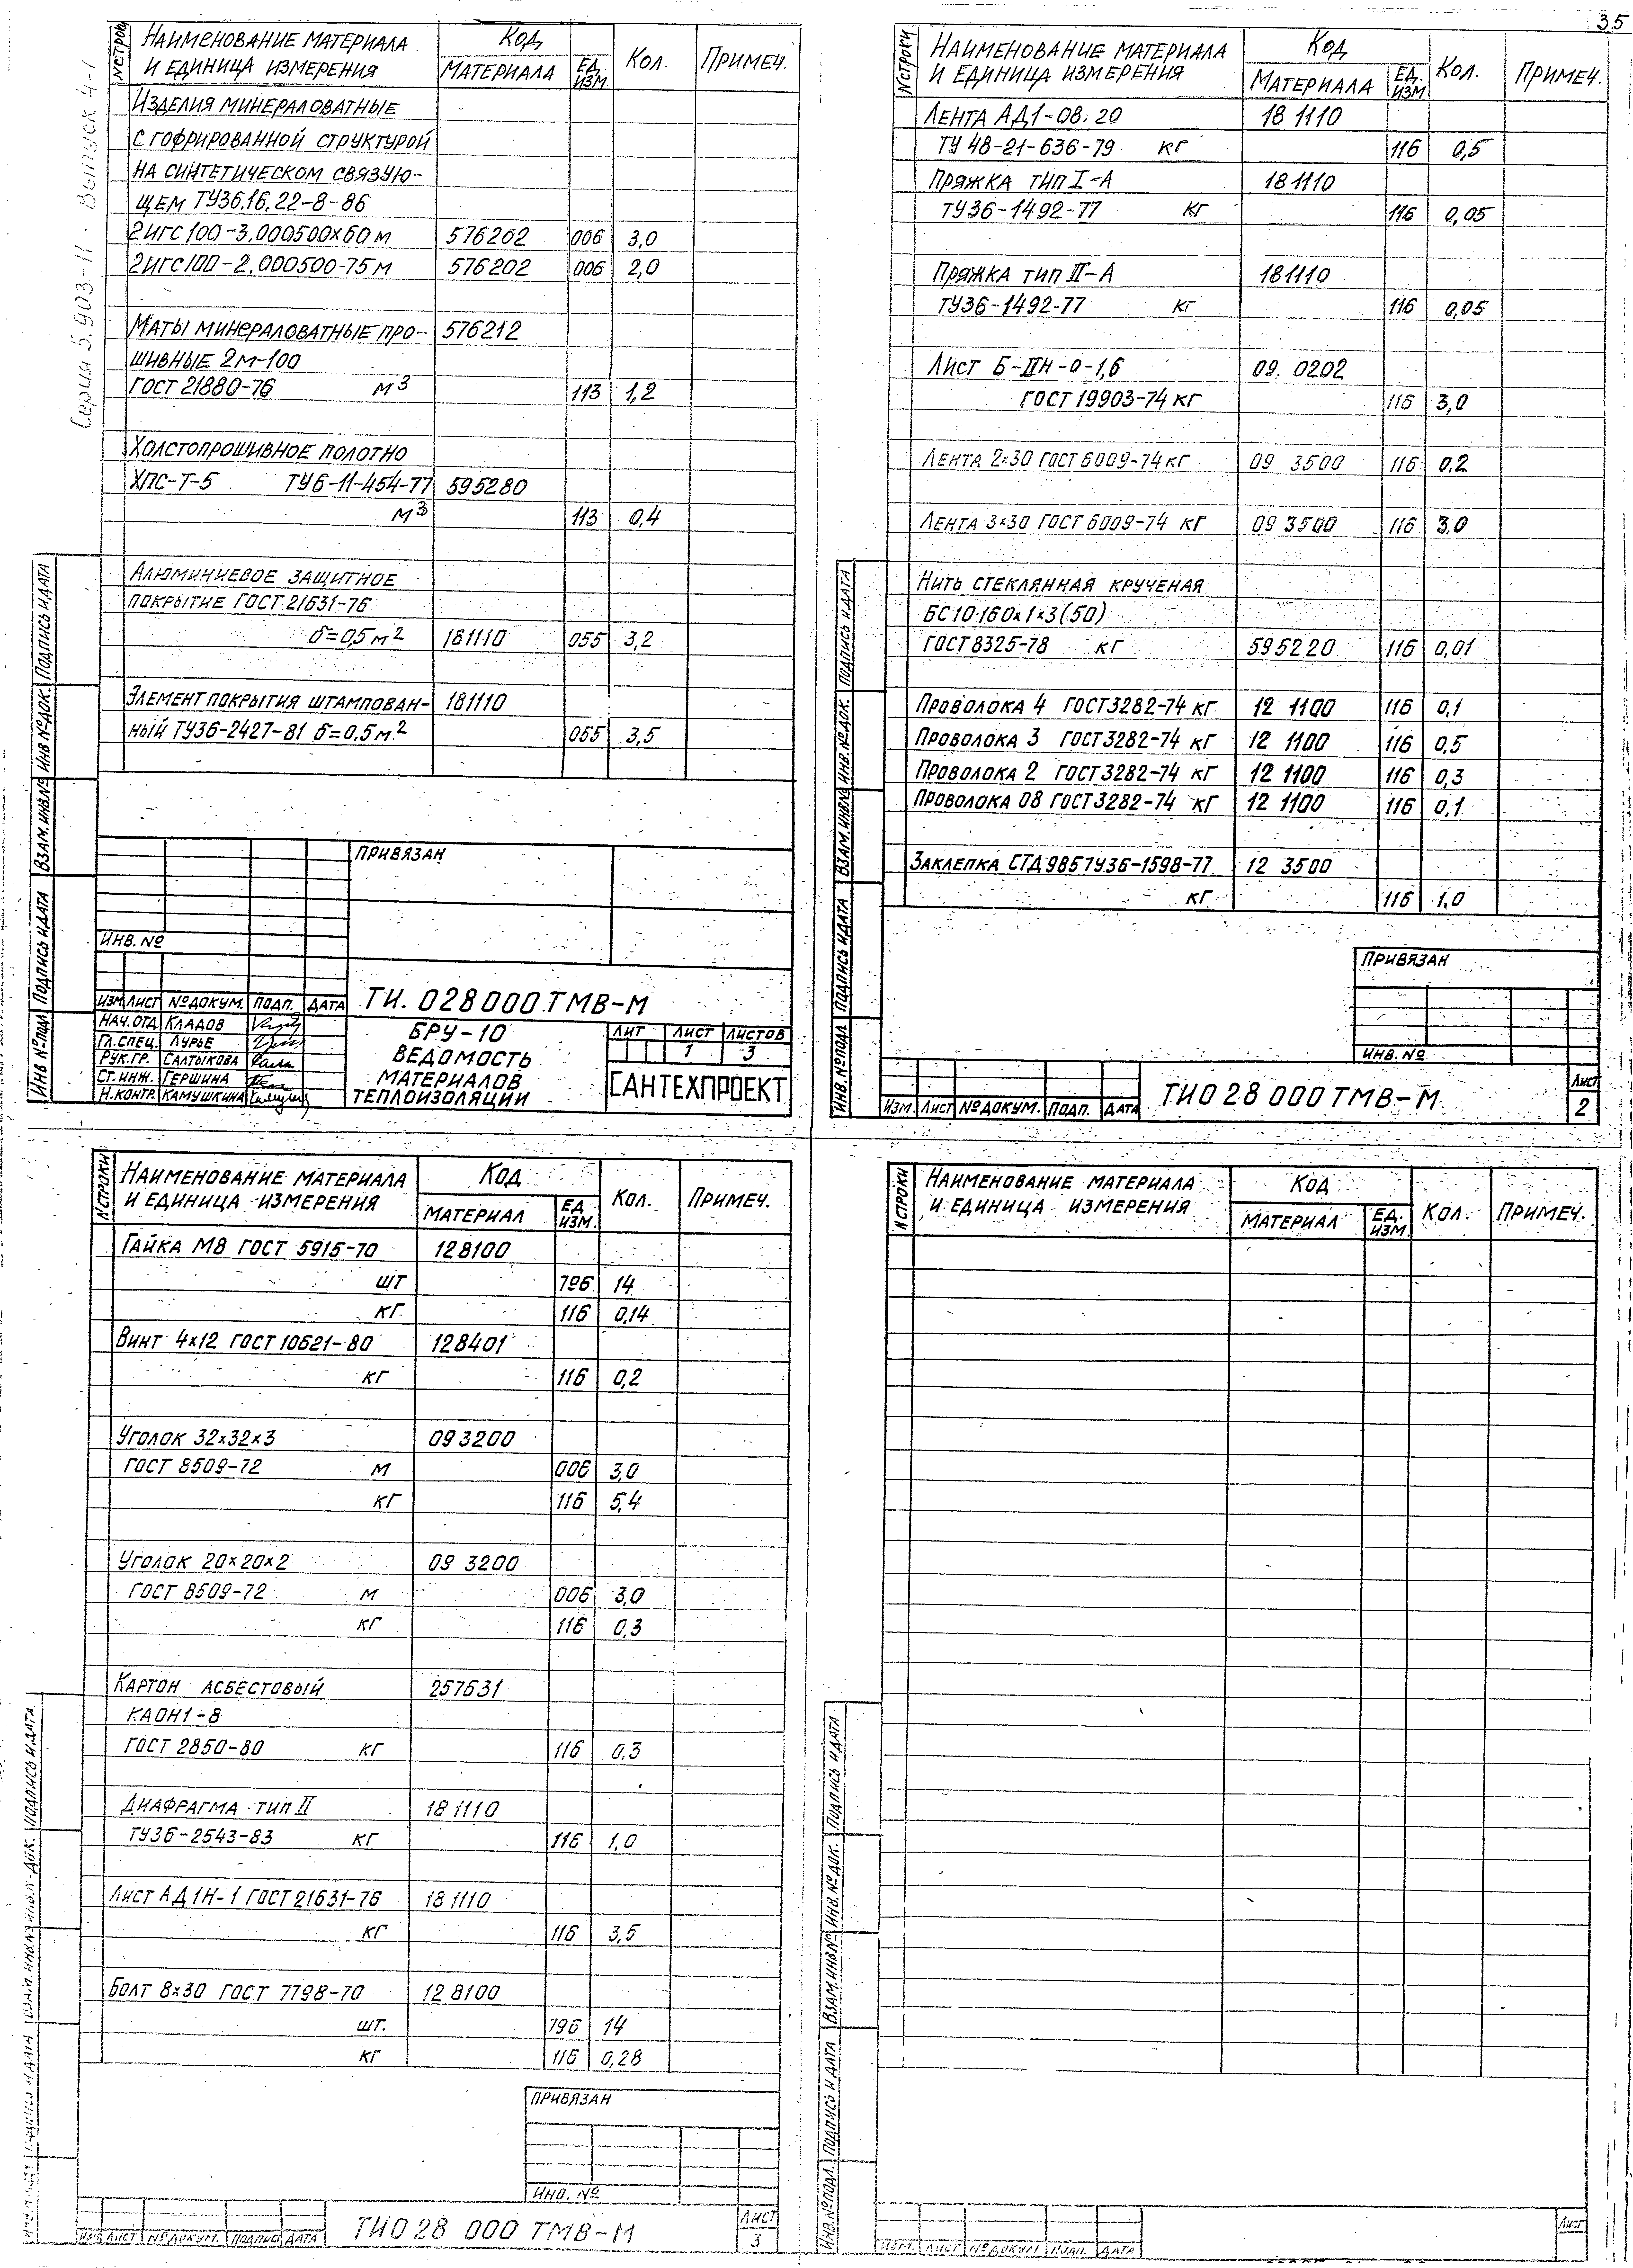 35
Серия 5.903-11. Выпуск 4-1
№ СТРОКИ
НАИМЕНОВАНИЕ МАТЕРИАЛА
И ЕДИНИЦА ИЗМЕРЕНИЯ
КОД
МАТЕРИАЛА
ЕД. ИЗМ.
КОЛ.
ПРИМЕЧ.
ИЗДЕЛИЯ МИНЕРАЛОВАТНЫЕ
С ГОФРИРОВАННОЙ СТРУКТУРОЙ
НА СИНТЕТИЧЕСКОМ СВЯЗУЮ-
ЩЕМ ТУ36.16.22-8-86
2ИГС100-3.000500х60 м 576202 006 3,0
2ИГС100-2.000500-75 м 576202 006 2,0
МАТЫ МИНЕРАЛОВАТНЫЕ ПРО- 576212
ШИВНЫЕ 2М-100
ГОСТ 21880-76 М3 113 1,2
ХОЛСТОПРОШИВНОЕ ПОЛОТНО
ХПС-Т-5 ТУ6-11-454-77 595280
М3 113 0,4
АЛЮМИНИЕВОЕ ЗАЩИТНОЕ
ПОКРЫТИЕ ГОСТ 21631-76
δ=0,5 м2 181110 055 3,2
ЭЛЕМЕНТ ПОКРЫТИЯ ШТАМПОВАН- 181110
НЫЙ ТУ36-2427-81 δ=0,5 м2 055 3,5
ПРИВЯЗАН
ИНВ. №
ИЗМ. ЛИСТ № ДОКУМ. ПОДП. ДАТА
ТИ. 028000.ТМВ-М
НАЧ. ОТД. КЛАДОВ
ГЛ. СПЕЦ. ЛУРЬЕ
РУК. ГР. САЛТЫКОВА
СТ. ИНЖ. ГЕРШИНА
Н. КОНТР. КАМУШКИНА
БРУ-10
ВЕДОМОСТЬ
МАТЕРИАЛОВ
ТЕПЛОИЗОЛЯЦИИ
ЛИТ ЛИСТ ЛИСТОВ
1 3
САНТЕХПРОЕКТ
ИНВ № ПОДЛ ПОДПИСЬ И ДАТА ВЗАМ. ИНВ.№ ИНВ № ДОК. ПОДПИСЬ И ДАТА
№ СТРОКИ
НАИМЕНОВАНИЕ МАТЕРИАЛА
И ЕДИНИЦА ИЗМЕРЕНИЯ
КОД
МАТЕРИАЛА
ЕД. ИЗМ
КОЛ.
ПРИМЕЧ.
ЛЕНТА АД1-08.20 18 1110
ТУ 48-21-636-79 КГ 116 0,5
ПРЯЖКА ТИП I-А 181110
ТУ36-1492-77 КГ 116 0,05
ПРЯЖКА ТИП II-А 181110
ТУ36-1492-77 КГ 116 0,05
ЛИСТ Б-ПН-0-1,6 09. 0202
ГОСТ 19903-74 КГ 116 3,0
ЛЕНТА 2х30 ГОСТ 6009-74 КГ 09 3500 116 0,2
ЛЕНТА 3х30 ГОСТ 6009-74 КГ 09 3500 116 3,0
НИТЬ СТЕКЛЯННАЯ КРУЧЕНАЯ
БС10·160х1х3(50)
ГОСТ 8325-78 КГ 595220 116 0,01
ПРОВОЛОКА 4 ГОСТ 3282-74 КГ 12 1100 116 0,1
ПРОВОЛОКА 3 ГОСТ 3282-74 КГ 12 1100 116 0,5
ПРОВОЛОКА 2 ГОСТ 3282-74 КГ 12 1100 116 0,3
ПРОВОЛОКА 08 ГОСТ 3282-74 КГ 12 1100 116 0,1
ЗАКЛЕПКА СТД985ТУ36-1598-77 12 3500
КГ 116 1,0
ПРИВЯЗАН
ИНВ. №
ИЗМ. ЛИСТ № ДОКУМ. ПОДП. ДАТА
ТИ028 000 ТМВ-М
ЛИСТ
2
ИНВ. № ПОДЛ. ПОДПИСЬ И ДАТА ВЗАМ. ИНВ.№ ИНВ. № ДОК. ПОДПИСЬ И ДАТА
№ СТРОКИ
НАИМЕНОВАНИЕ МАТЕРИАЛА
И ЕДИНИЦА ИЗМЕРЕНИЯ
КОД
МАТЕРИАЛ
ЕД. ИЗМ.
КОЛ.
ПРИМЕЧ.
ГАЙКА М8 ГОСТ 5915-70 128100
ШТ 796 14
КГ. 116 0,14
ВИНТ 4х12 ГОСТ 10621-80 128401
КГ 116 0,2
УГОЛОК 32х32х3 093200
ГОСТ 8509-72 М 006 3,0
КГ 116 5,4
УГОЛОК 20х20х2 09 3200
ГОСТ 8509-72 М 006 3,0
КГ 116 0,3
КАРТОН АСБЕСТОВЫЙ 257631
КАОН1-8
ГОСТ 2850-80 КГ 116 0,3
ДИАФРАГМА ТИП II 18 1110
ТУ36-2543-83 КГ 116 1,0
ЛИСТ АД1Н-1 ГОСТ 21631-76 18 1110
КГ 116 3,5
БОЛТ 8х30 ГОСТ 7798-70 12 8100
ШТ. 796 14
КГ 116 0,28
ПРИВЯЗАН
ИНВ. №
ИЗМ. ЛИСТ № ДОКУМ. ПОДПИСЬ ДАТА
ТИ028 000 ТМВ-М
ЛИСТ
3
ПОДПИСЬ И ДАТА
№ СТРОКИ
НАИМЕНОВАНИЕ МАТЕРИАЛА
И ЕДИНИЦА ИЗМЕРЕНИЯ
КОД
МАТЕРИАЛ
ЕД. ИЗМ.
КОЛ.
ПРИМЕЧ.
ИНВ. № ПОДЛ. ПОДПИСЬ И ДАТА ВЗАМ. ИНВ № ИНВ. № ДОК. ПОДПИСЬ И ДАТА
ИЗМ. ЛИСТ № ДОКУМ ПОДП. ДАТА
ЛИСТ